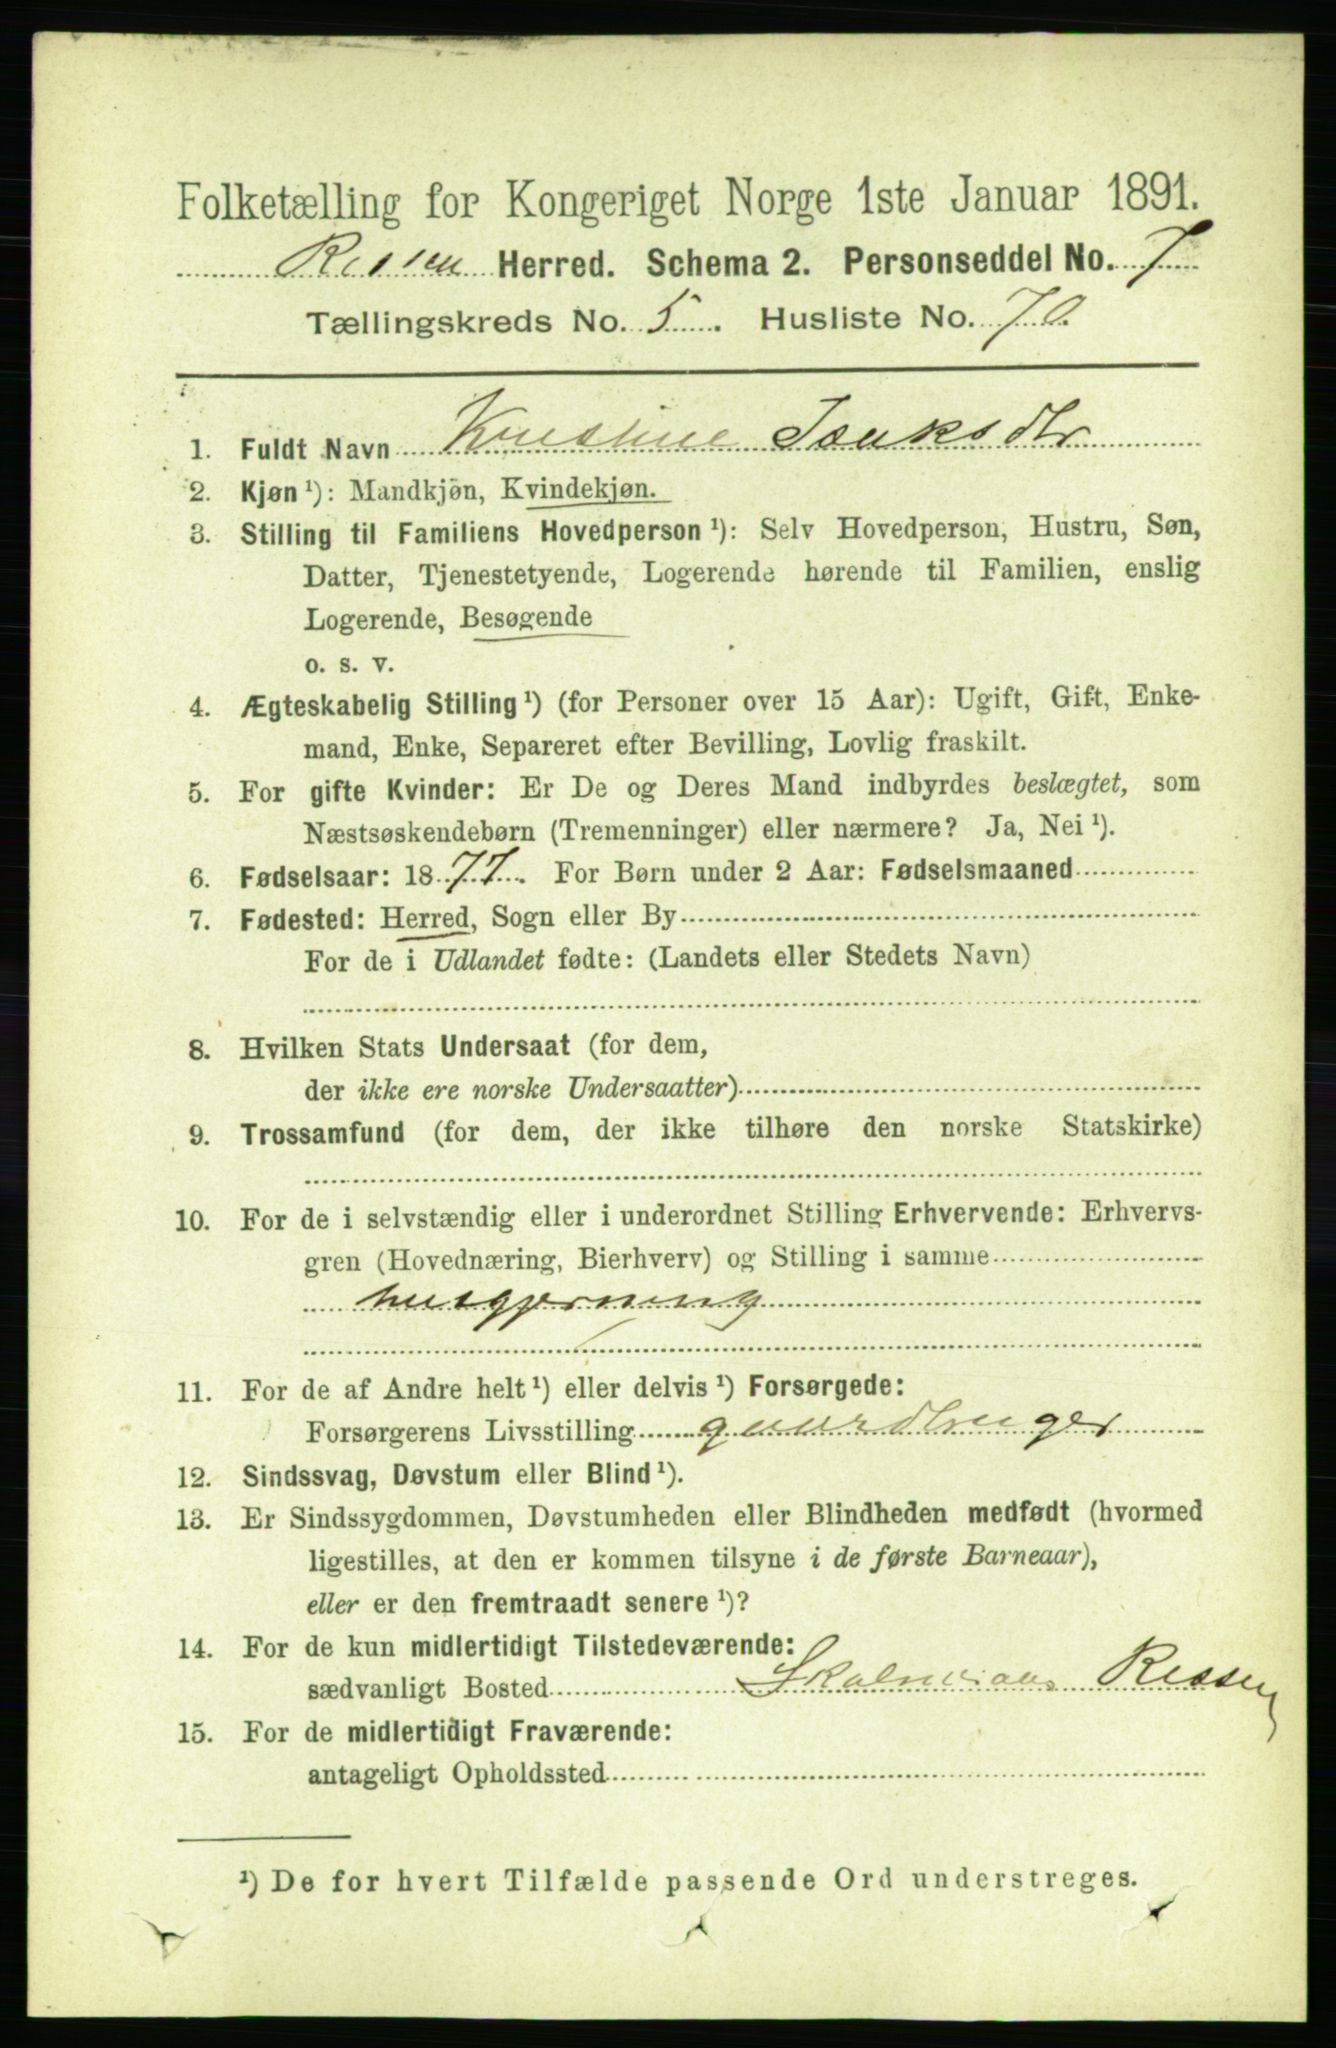 Folketælling for Kongeriget Norge 1ste Januar 1891.
Rissen Herred. Schema 2. Personseddel No. 7
Tællingskreds No. 5. Husliste No. 70.
1. Fuldt Navn Kristine Isaksdtr
2. Kjøn ¹): Mandkjøn, Kvindekjøn.
3. Stilling til Familiens Hovedperson ¹): Selv Hovedperson, Hustru, Søn,
Datter, Tjenestetyende, Logerende hørende til Familien, enslig
Logerende, Besøgende
o. s. v.
4. Ægteskabelig Stilling ¹) (for Personer over 15 Aar): Ugift, Gift, Enke-
mand, Enke, Separeret efter Bevilling, Lovlig fraskilt.
5. For gifte Kvinder: Er De og Deres Mand indbyrdes beslægtet, som
Næstsøskendebørn (Tremenninger) eller nærmere? Ja, Nei ¹).
6. Fødselsaar: 1877. For Børn under 2 Aar: Fødselsmaaned
7. Fødested: Herred, Sogn eller By
For de i Udlandet fødte: (Landets eller Stedets Navn)
8. Hvilken Stats Undersaat (for dem,
der ikke ere norske Undersaatter)
9. Trossamfund (for dem, der ikke tilhøre den norske Statskirke)
10. For de i selvstændig eller i underordnet Stilling Erhvervende: Erhvervs-
gren (Hovednæring, Bierhverv) og Stilling i samme
husgjerning
11. For de af Andre helt ¹) eller delvis ¹) Forsørgede:
Forsørgerens Livsstilling gaardbruger
12. Sindssvag, Døvstum eller Blind ¹).
13. Er Sindssygdommen, Døvstumheden eller Blindheden medfødt (hvormed
ligestilles, at den er kommen tilsyne i de første Barneaar),
eller er den fremtraadt senere ¹)?
14. For de kun midlertidigt Tilstedeværende:
sædvanligt Bosted Rissen
15. For de midlertidigt Fraværende:
antageligt Opholdssted
¹) De for hvert Tilfælde passende Ord understreges.